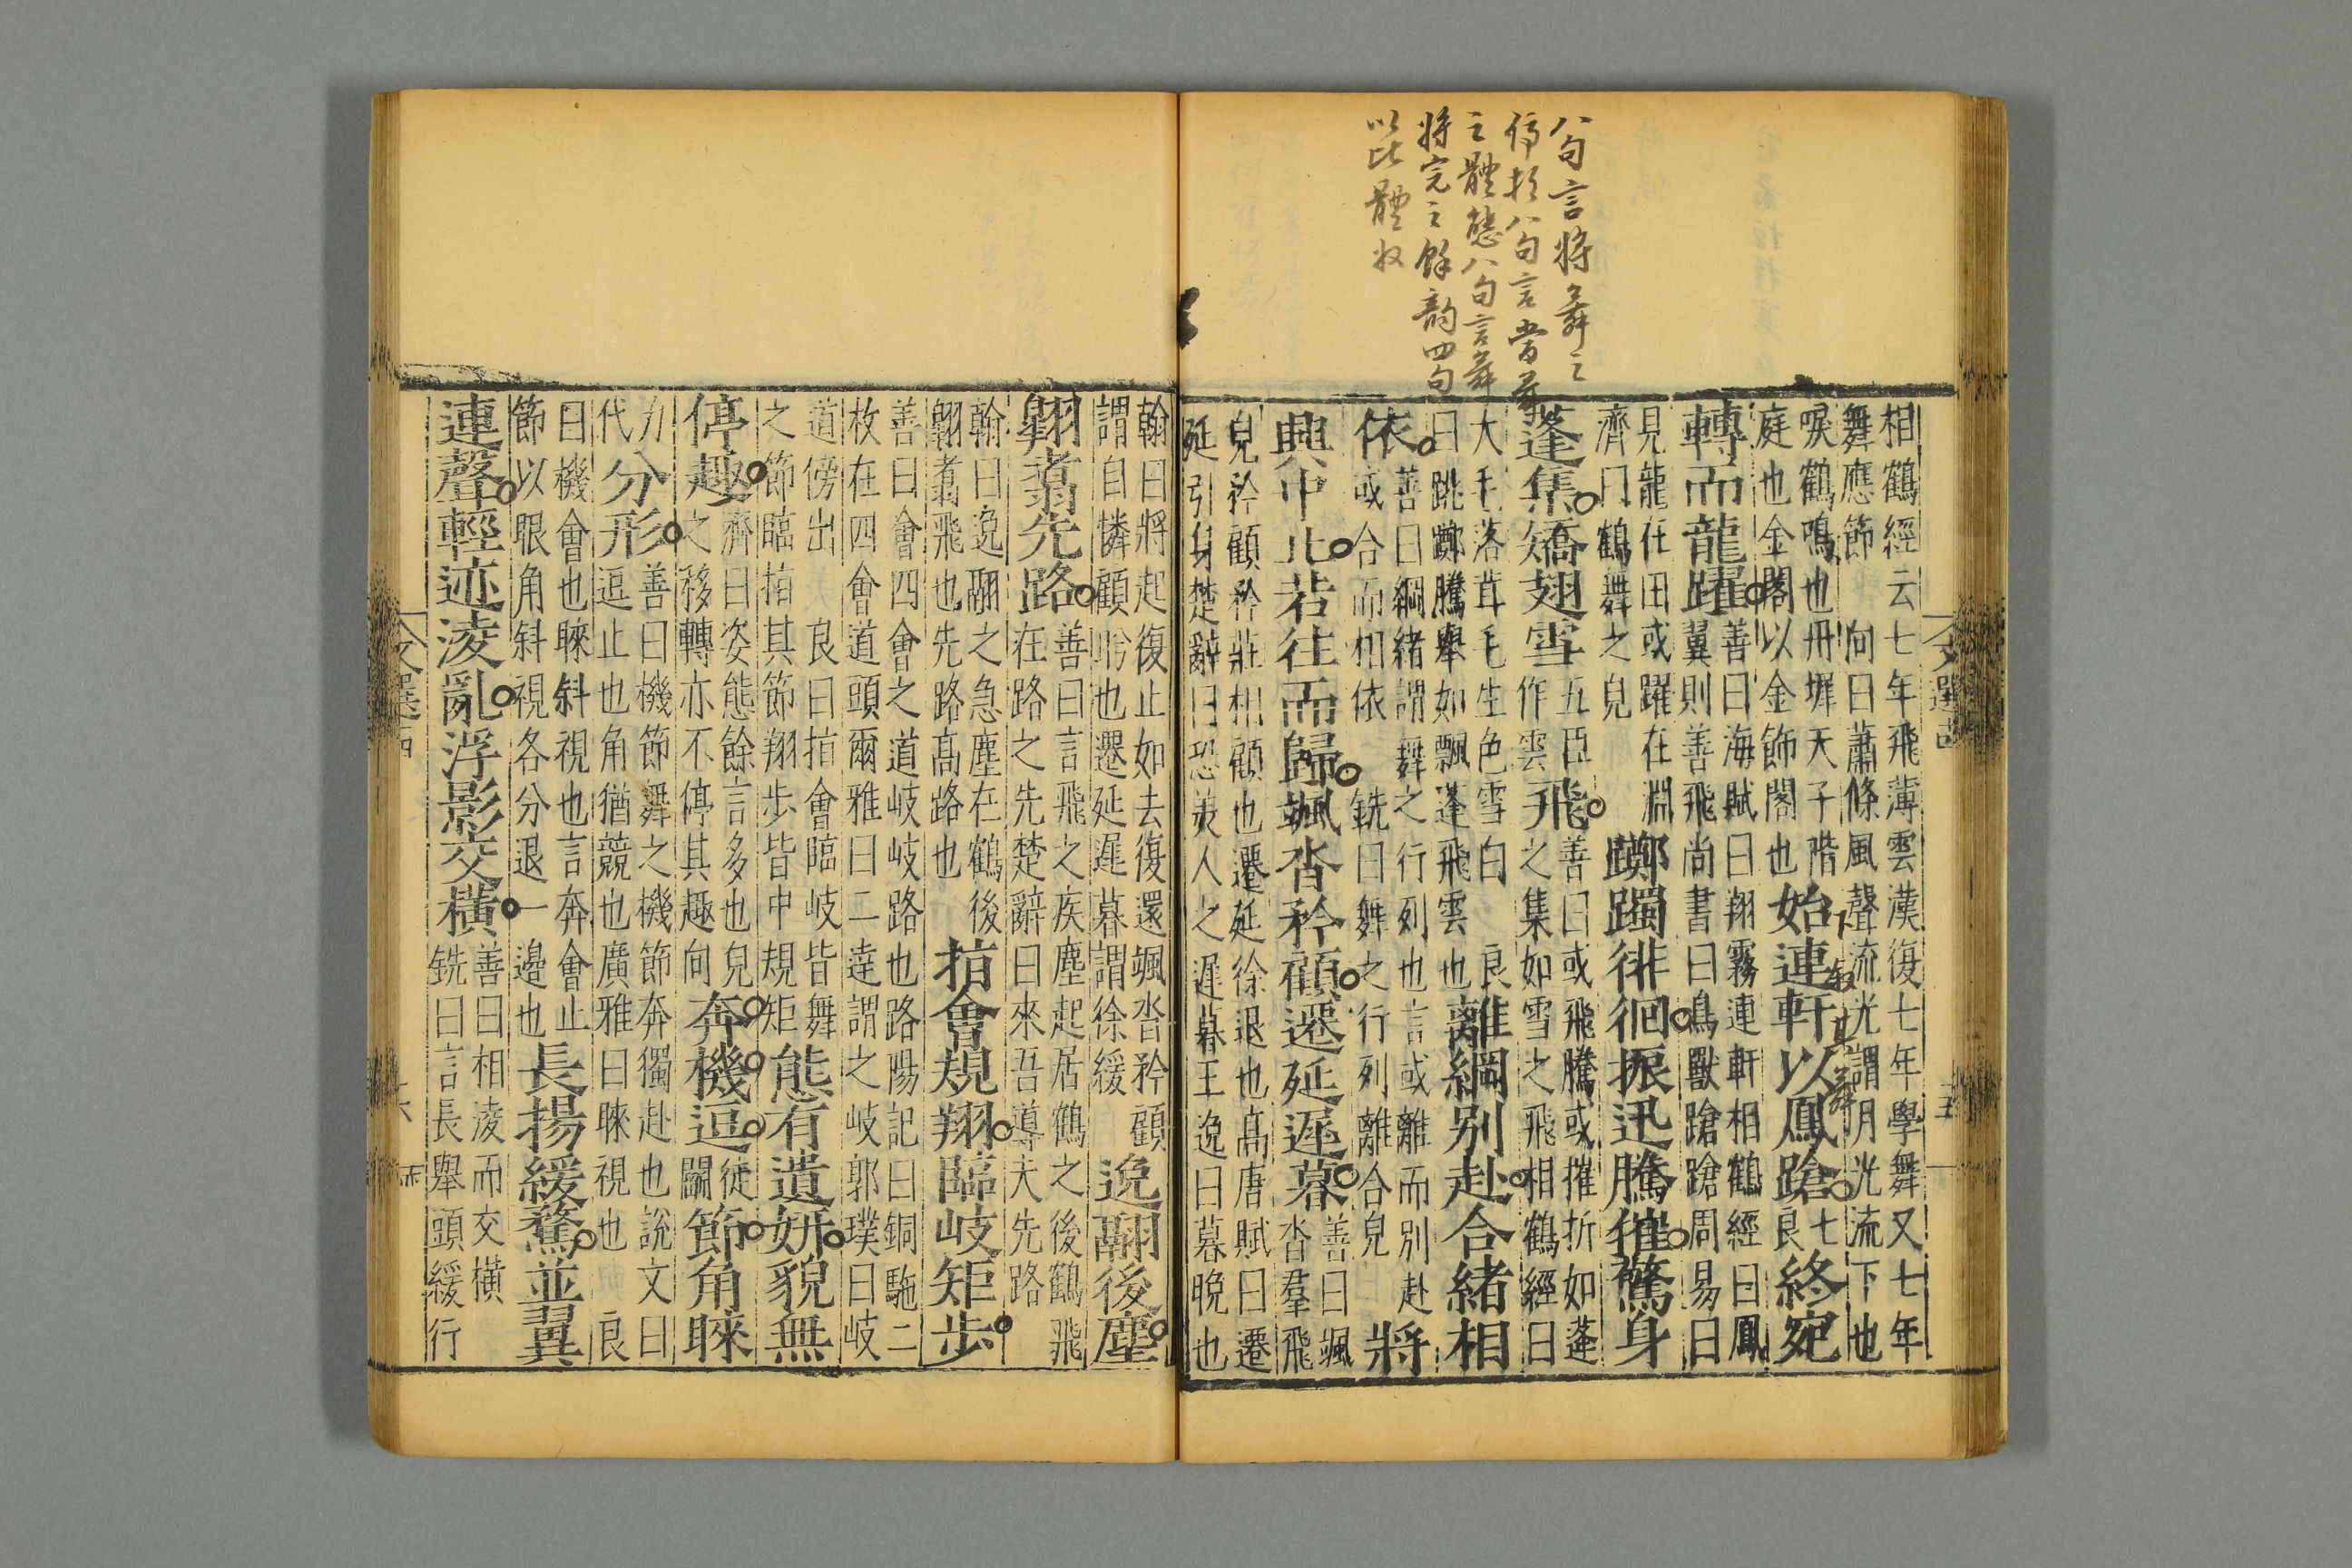 八句言將舞之
停於八句言當舞
之體態八句言舞
將完之餘韵四句
以比體收
相鶴經云七年飛薄雲漢復七年學舞又七年
舞應節 向曰蕭條風聲流光謂月光流下也
唳鶴鳴也丹墀天子階 七
庭也金閣以金飾閣也始連軒以鳳蹌 良 終宛
轉而龍躍善曰海賦曰翔霧連軒相鶴經曰鳳
翼則善飛尚書曰鳥獸蹌蹌周易曰
見龍在田或躍在淵
濟曰鶴舞之皃 躑躅徘徊振迅騰摧驚身
蓬集矯翅雪五臣
作雲飛善曰或飛騰或摧折如蓬
之集如雪之飛相鶴經曰
大毛落茸毛生色雪白 良
曰跳躑騰舉如飄蓬飛雲也離綱別赴合緒相
依善曰綱緒謂舞之行列也言或離而別赴
或合而相依 銑曰舞之行列離合皃 將
興中止若往而歸颯沓矜顧遷延遲暮善曰颯
沓羣飛
皃矜顧矜莊相顧也遷延徐退也高唐賦曰遷
延引身楚辭曰恐美人之遲暮王逸曰暮晚也
文選十四
五
翰曰將起復止如去復還颯沓矜顧
謂自憐顧盻也遷延遲暮謂徐緩 逸翮後塵
翱翥先路善曰言飛之疾塵起居鶴之後鶴飛
在路之先楚辭曰來吾導夫先路
翰曰逸翮之急塵在鶴後
翱翥飛也先路高路也 指會規翔臨岐矩步
善曰會四會之道岐岐路也路陽記曰銅駞二
枚在四會道頭爾雅曰二逹謂之岐郭璞曰岐
道傍出 良曰指會臨岐皆舞
之節臨指其節翔步皆中規矩態有遺妍貌無
停趣濟曰姿態餘言多也皃
之移轉亦不停其趣向奔機逗徒
鬭節角睞
分形善曰機節舞之機節奔獨赴也說文曰
代逗止也角猶競也廣雅曰睞視也 良
曰機會也睞斜視也言奔會止
節以眼角斜視各分退一邊也長揚緩騖並翼
連聲輕迹淩亂浮影交橫善曰相淩而交橫
銑曰言長舉頭緩行
文選十四
十六